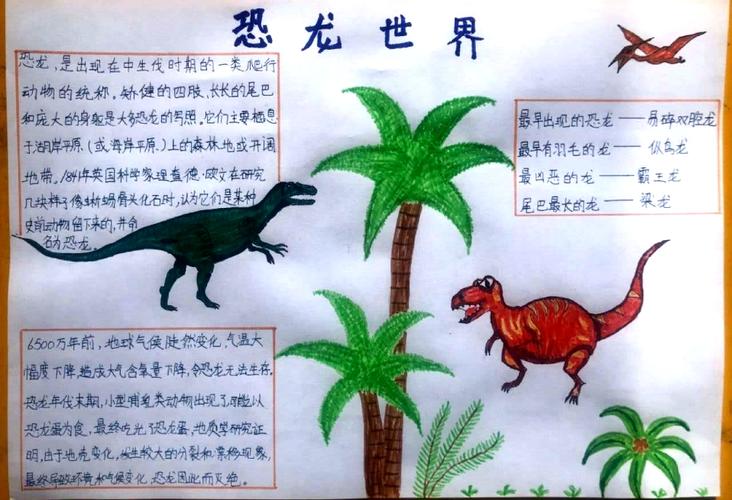 恐龙世界
恐龙,是出现在中生代时期的一类爬行
动物的统称。矫健的四肢、长长的尾巴
和庞大的身躯是大多恐龙的写照。它们主要栖息
于湖岸平原、(或海岸平原、)上的森林地或开阔
地带。1841年英国科学家理查德·欧文在研究
几块样子像蜥蜴骨头化石时,认为它们是某种
史前动物留下来的,并命
名为恐龙。
最早出现的恐龙——易碎双腔龙
最早有羽毛的龙——似鸟龙
最凶恶的龙——霸王龙
尾巴最长的龙——梁龙
6500万年前,地球气候陡然变化,气温大
幅度下降,造成大气含氧量下降,令恐龙无法生存。
恐龙年代末期,小型哺乳类动物出现了,可能以
恐龙蛋为食,最终吃光了恐龙蛋,地质学研究证
明,由于地壳变化,发生较大的分裂和漂移现象,
最终导致环境和气候变化,恐龙因此而灭绝。